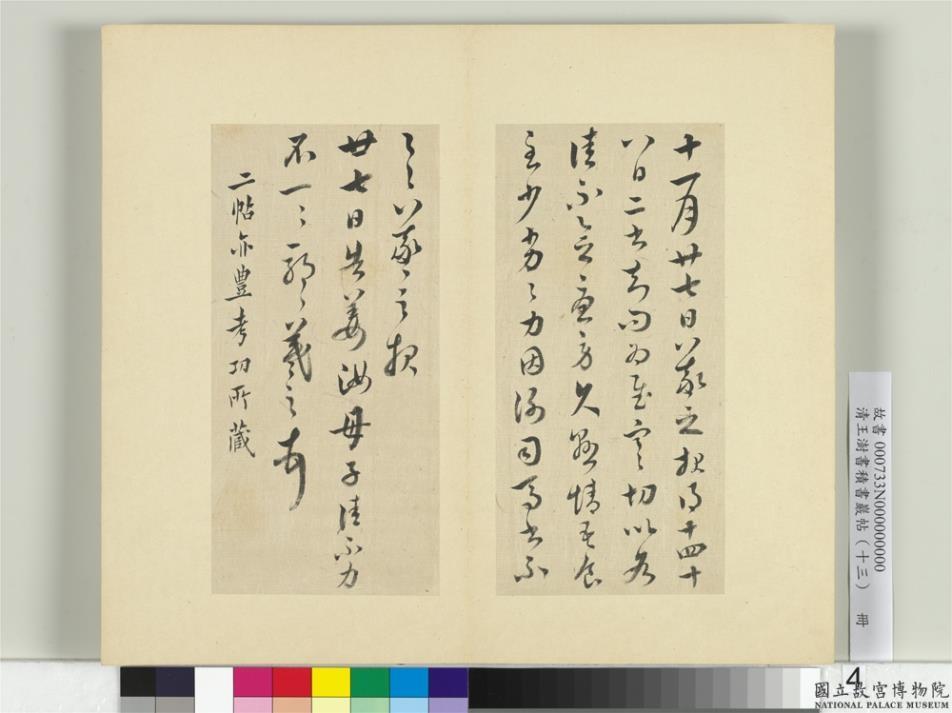 十一月廿七日羲之報得十四十
八日二書知問為慰寒切比各
佳不念憂勞久懸情吾食
至少劣〻力因謝司馬書不
一一羲之報
廿七日告姜汝母子佳不力
不一〻耶〻羲之告
二帖亦豐考功所藏
故書 000733N000000000
清王澍書積書巖帖（十三） 冊
4
國立故宮博物院
NATIONAL PALACE MUSEUM